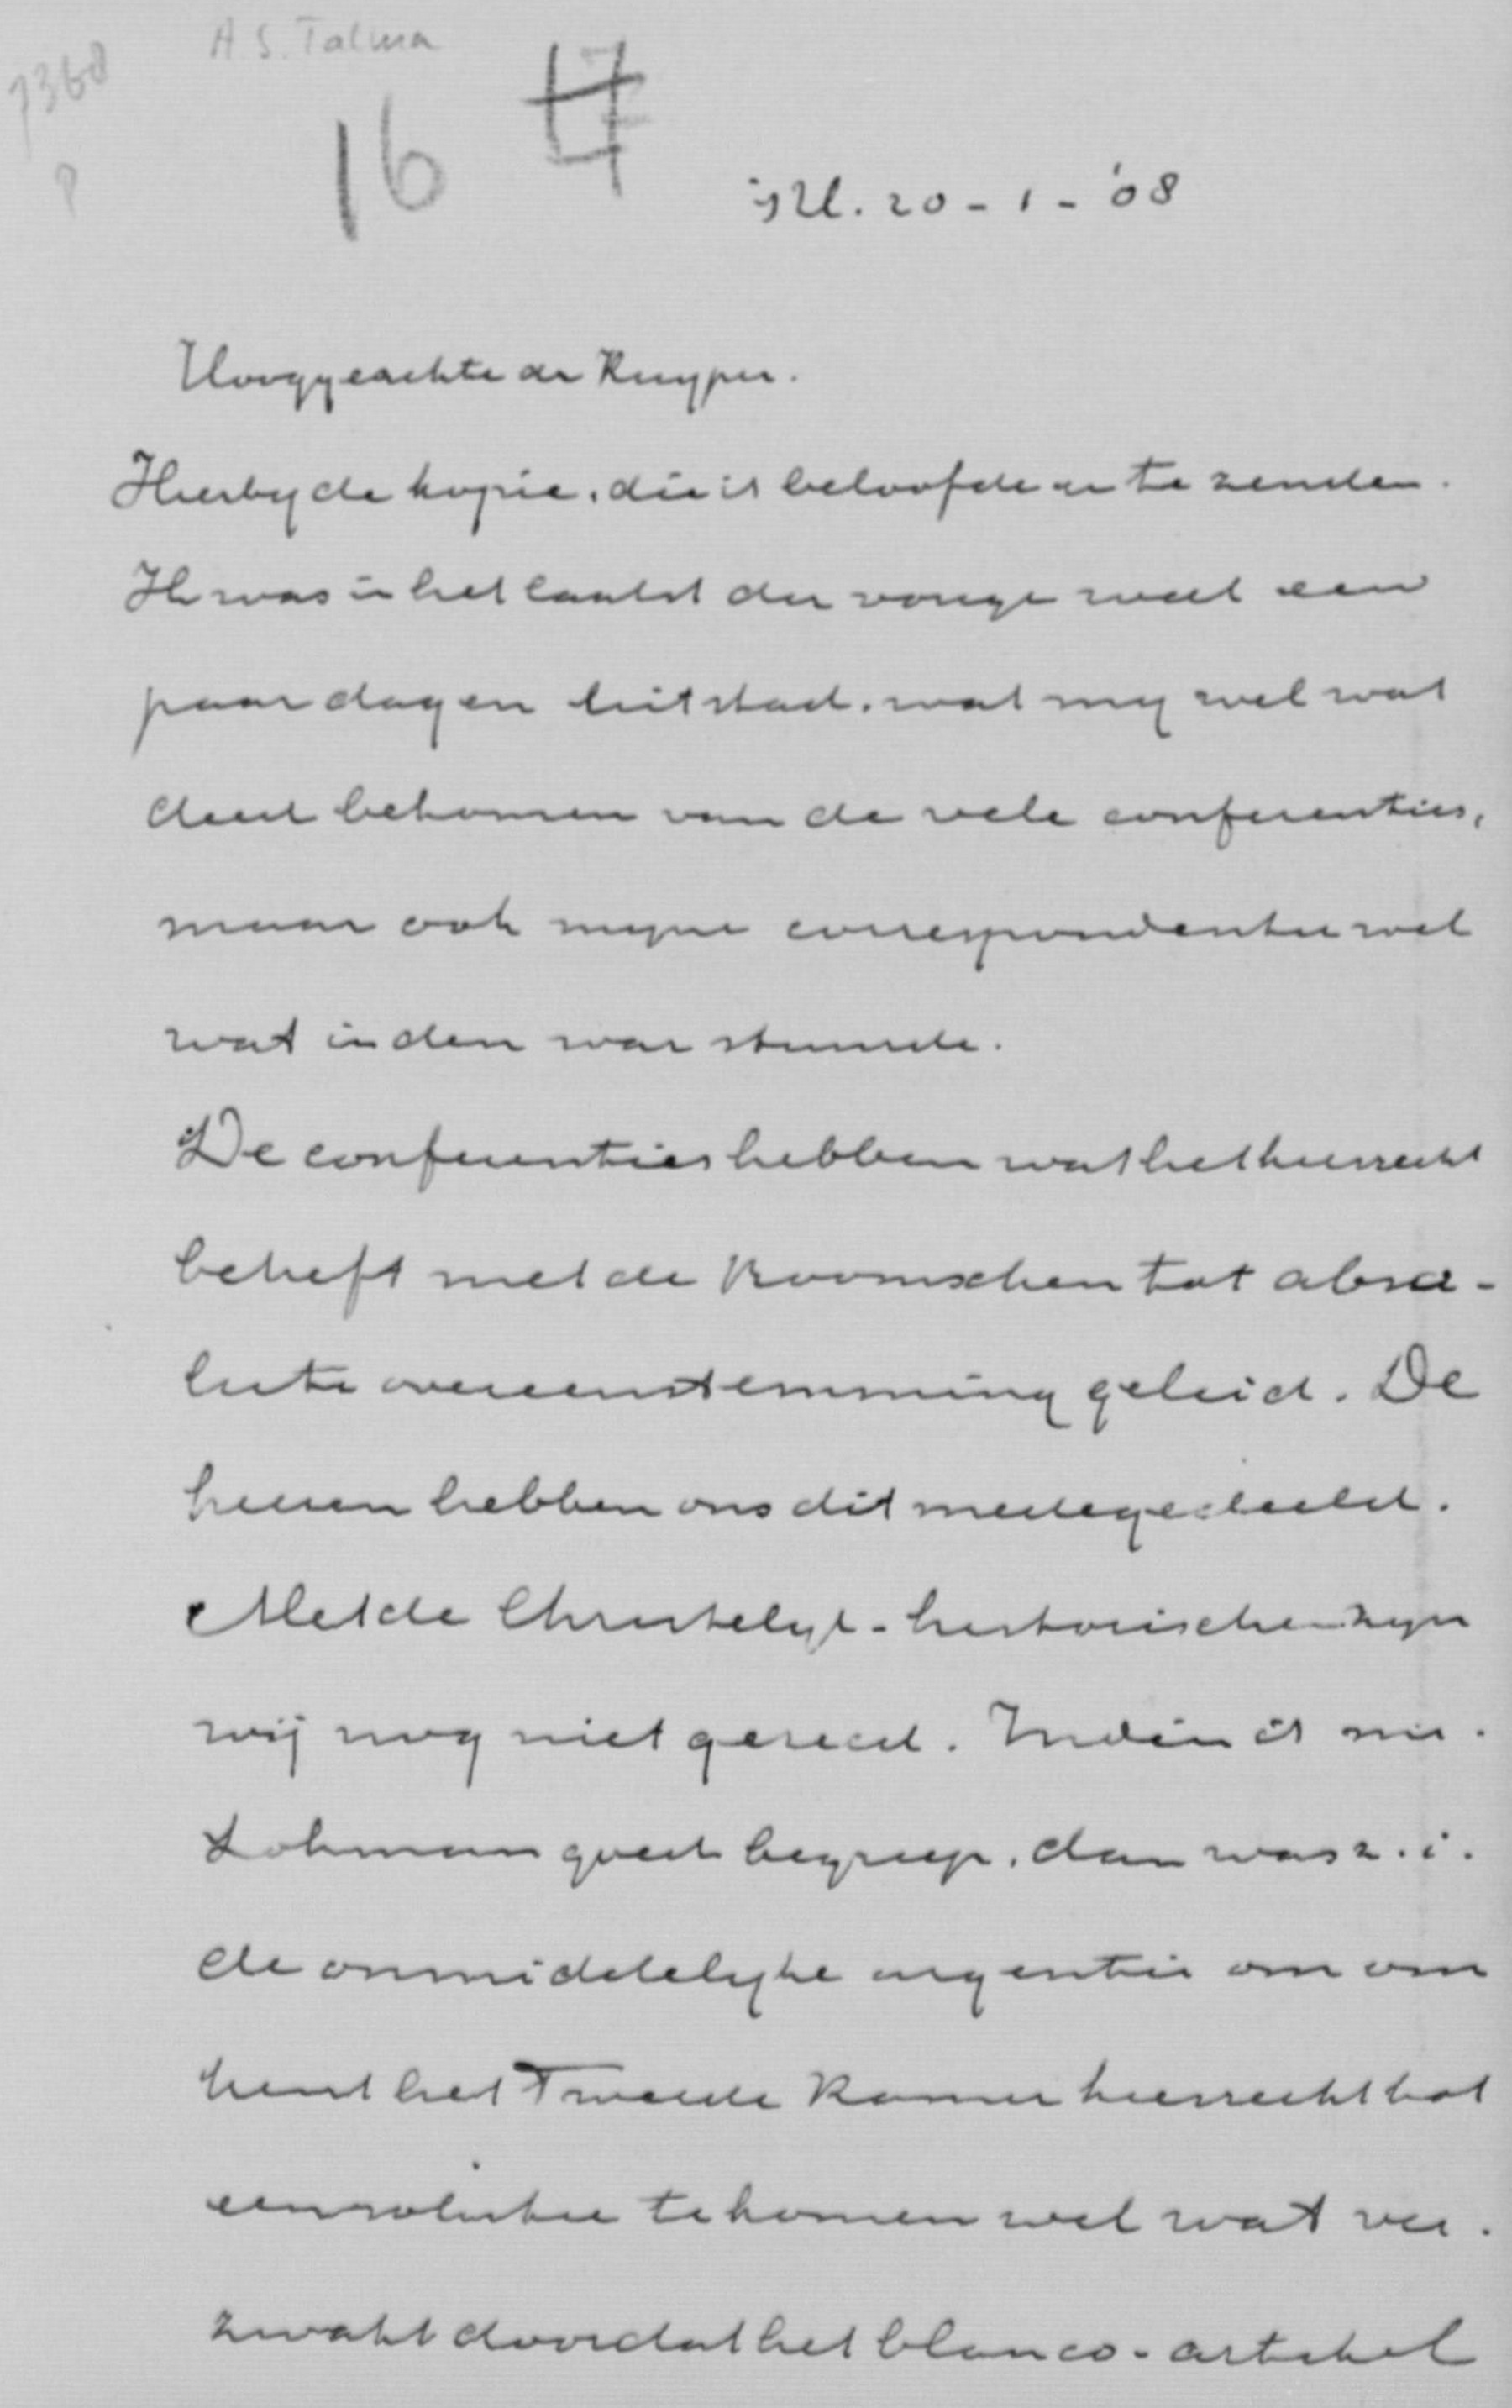 A S. Talma
7368
16
H. 20-1-'08
Hooggeachte dr Kuyper.
Hierby de kopie, die ik beloofde u te zenden.
Ik was in het laatst der vorige week een
paar dagen uit stad, wat my wel wat
deed bekomen van de vele conferenties,
maar ook myne correspondentie wel
wat in den war stuurde.
De conferenties hebben wat het kiesrecht
betreft met de Roomschen tot abso-
lute overeenstemming geleid. De
heeren hebben ons dit medegedeeld.
Met de Christelyk-historischen zyn
wij nog niet gereed. Indien ik mr.
Lohman goed begreep, dan was z.i.
de onmiddelelyke urgentie om om
trent het Tweede Kamer kiesrecht tot
een solutie te komen wel wat ver.
zwakt doordat het blanco-artikel